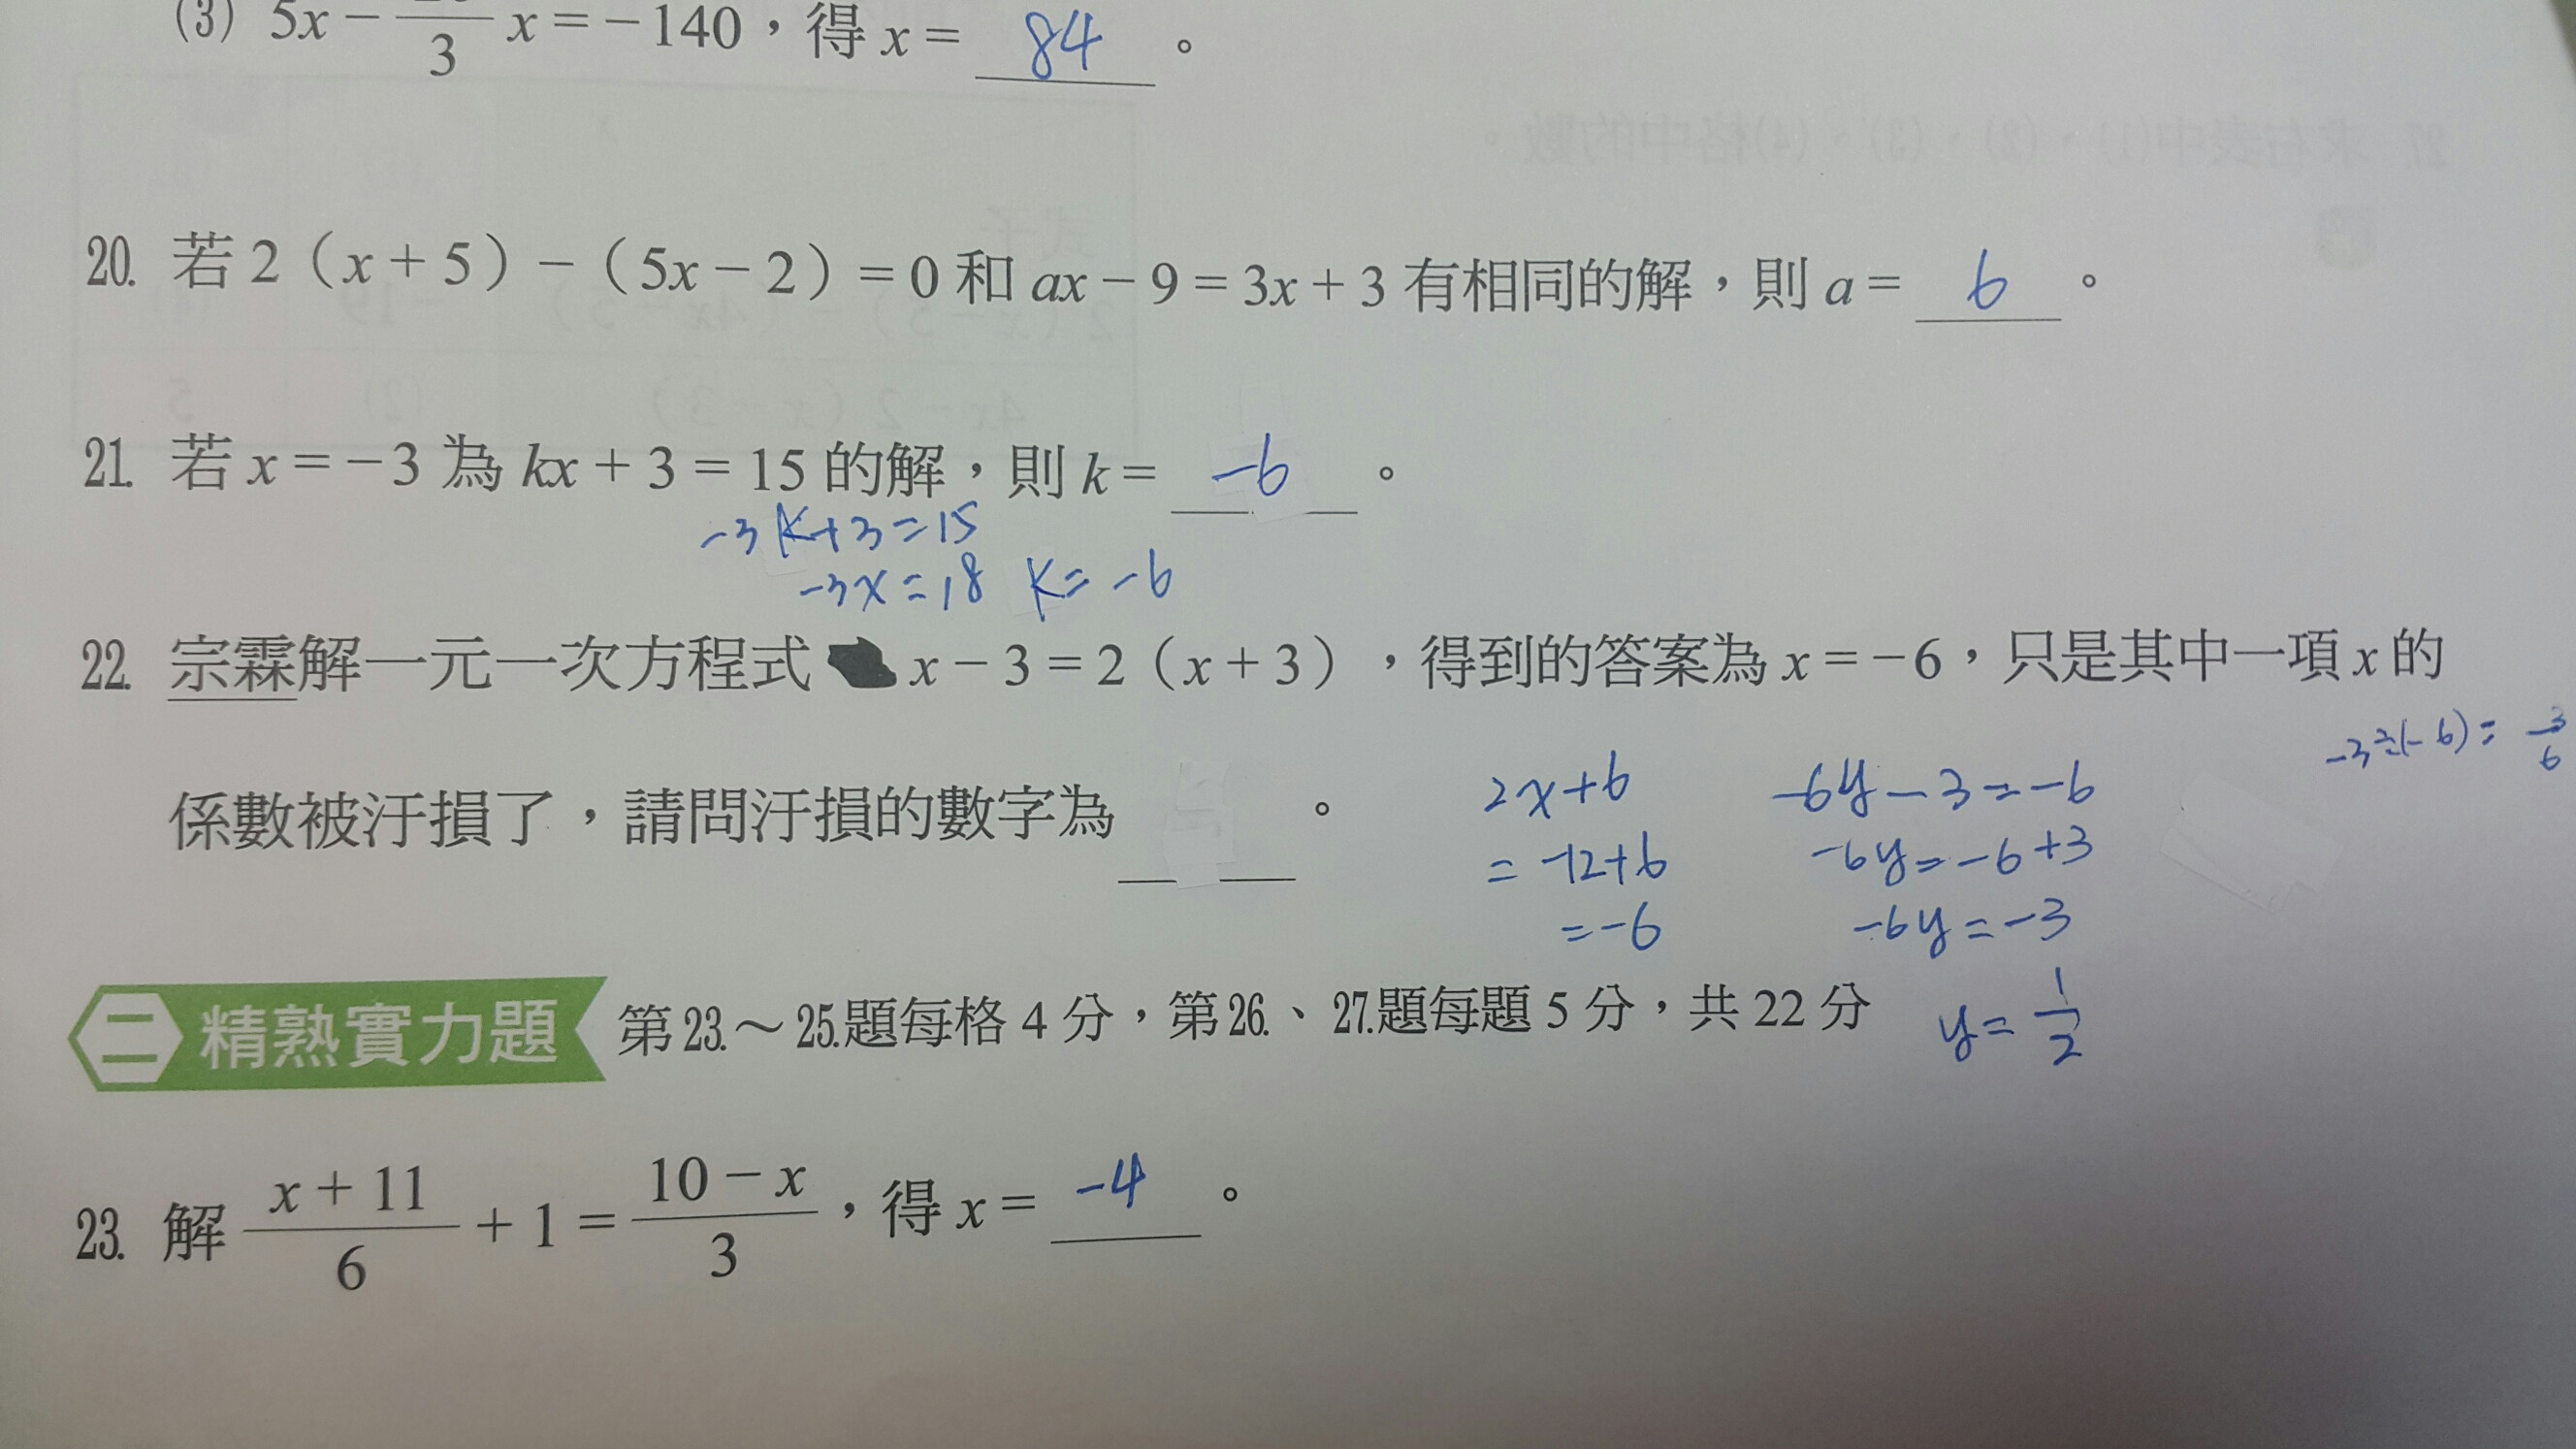 (3) 5x－ 3 x＝－140，得x＝ 84 。
20. 若2（x＋5）－（5x－2）＝0和ax－9＝3x＋3有相同的解，則a＝ 6 。
21. 若x＝－3為kx＋3＝15的解，則k＝ －6 。
－3k＋3＝15
－3x＝18 k＝－6
22. 宗霖解一元一次方程式 x－3＝2（x＋3），得到的答案為x＝－6，只是其中一項x的
係數被汙損了，請問汙損的數字為 。
2x＋6
＝－12＋6
＝－6
－6y－3＝－6
－6y＝－6＋3
－6y＝－3
y＝1/2
－3÷(－6)＝3/6
二 精熟實力題 第23.～25.題每格4分，第26.、27.題每題5分，共22分
23. 解 (x＋11)/6 ＋1＝ (10－x)/3，得x＝ －4 。